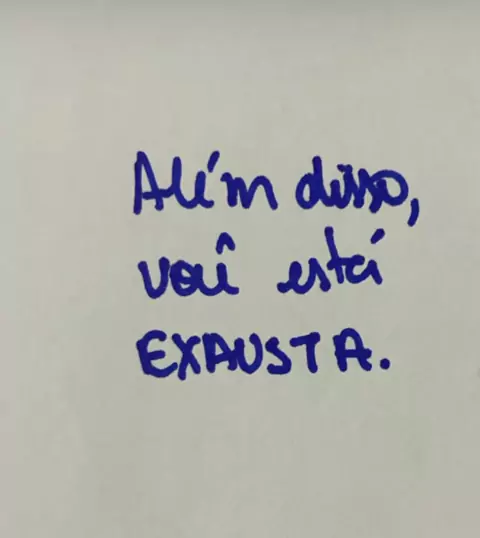 Além disso,
você está
EXAUSTA.